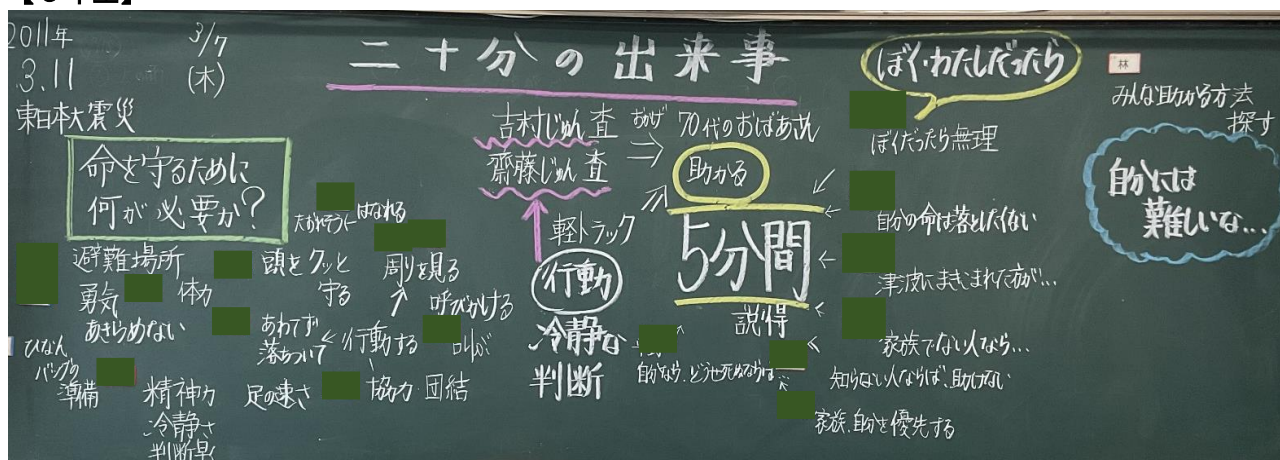 2011年
3.11
東日本大震災
3/7
(木)
二十分の出来事
命を守るために
何が必要か?
避難場所
勇気
体力
あきらめない
ひなん
バッグの
準備
精神力
冷静さ
判断早く
頭をグッと
守る
あわてず
落ちついて
足の速さ
はなれる
周りを見る
呼びかける
行動する
協力・団結
吉村じゅん査
齋藤じゅん査
おかげ
70代のおばあさん
助かる
軽トラック
行動
冷静な
判断
5分間
説得
自分なら、どうせ死ぬならば…
ぼく・わたしだったら
ぼくだったら無理
自分の命は落としたくない
津波にまきこまれた方が…
家族でない人なら…
知らない人ならば、助けない
家族、自分を優先する
林
みんな助かる方法
探す
自分には
難しいな…